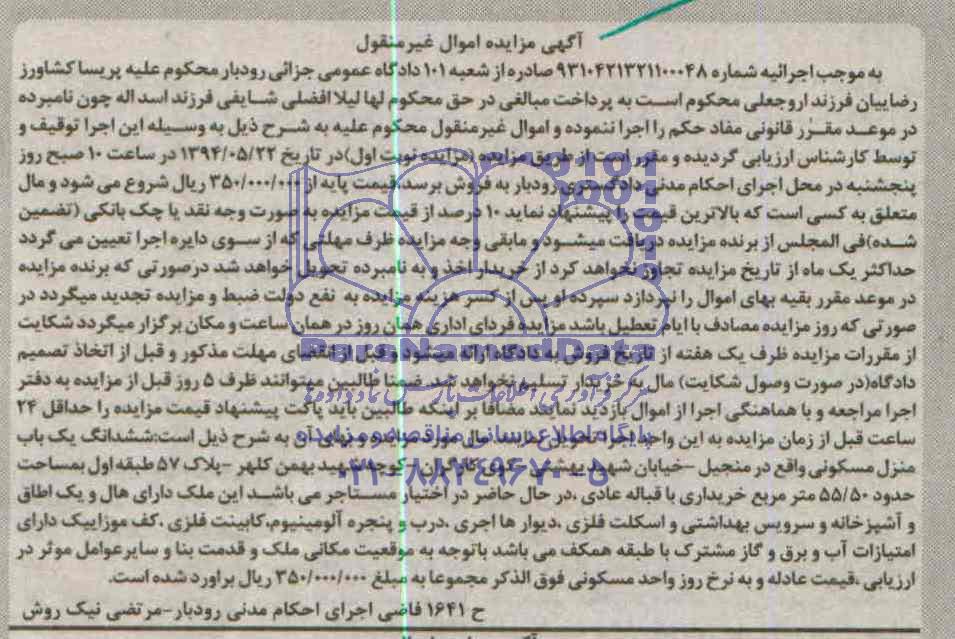 آگهی مزایده اموال غیرمنقول
به موجب اجرائیه شماره ۹۳۱۰۴۲۱۳۲۱۱۰۰۰۴۸ صادره از شعبه ۱۰۱ دادگاه عمومی جزائی رودبار محکوم علیه پریسا کشاورز
رضاییان فرزند اروجعلی محکوم است به پرداخت مبالغی در حق محکوم لها لیلا افضلی شایفی فرزند اسداله چون نامبرده
در موعد مقرر قانونی مفاد حکم را اجرا ننموده و اموال غیرمنقول محکوم علیه به شرح ذیل به وسیله این اجرا توقیف و
توسط کارشناس ارزیابی گردیده و مقرر است از طریق مزایده (مزایده نوبت اول)در تاریخ ۱۳۹۴/۰۵/۲۲ در ساعت ۱۰ صبح روز
پنجشنبه در محل اجرای احکام مدنی دادگستری رودبار به فروش برسد.قیمت پایه از ۳۵۰/۰۰۰/۰۰۰ ریال شروع می شود و مال
متعلق به کسی است که بالاترین قیمت را پیشنهاد نماید ۱۰ درصد از قیمت مزایده به صورت وجه نقد یا چک بانکی (تضمین
شده)فی المجلس از برنده مزایده دریافت میشود و مابقی وجه مزایده ظرف مهلتی که از سوی دایره اجرا تعیین می گردد
حداکثر یک ماه از تاریخ مزایده تجاوز نخواهد کرد از خریدار اخذ و به نامبرده تحویل خواهد شد درصورتی که برنده مزایده
در موعد مقرر بقیه بهای اموال را نپردازد سپرده او پس از کسر هزینه مزایده به نفع دولت ضبط و مزایده تجدید میگردد در
صورتی که روز مزایده مصادف با ایام تعطیل باشد مزایده فردای اداری همان روز در همان ساعت و مکان برگزار میگردد شکایت
از مقررات مزایده ظرف یک هفته از تاریخ فروش به دادگاه ارائه میشود و قبل از انقضای مهلت مذکور و قبل از اتخاذ تصمیم
دادگاه(در صورت وصول شکایت) مال به خریدار تسلیم نخواهد شد.ضمنا طالبین میتوانند ظرف ۵ روز قبل از مزایده به دفتر
اجرا مراجعه و با هماهنگی اجرا از اموال بازدید نمایند مضافا بر اینکه طالبین باید پاکت پیشنهاد قیمت مزایده را حداقل ۲۴
ساعت قبل از زمان مزایده به این واحد اجرا تحویل نمایند. مال مورد مزایده و بهای آن به شرح ذیل است:ششدانگ یک باب
منزل مسکونی واقع در منجیل -خیابان شهید بهشتی -کوی کارگران -کوچه شهید بهمن کلهر -پلاک ۵۷ طبقه اول بمساحت
حدود ۵۵/۵۰ متر مربع خریداری با قباله عادی .در حال حاضر در اختیار مستاجر می باشد این ملک دارای هال و یک اطاق
و آشپزخانه و سرویس بهداشتی و اسکلت فلزی .دیوار ها اجری .درب و پنجره آلومینیوم.کابینت فلزی .کف موزاییک دارای
امتیازات آب و برق و گاز مشترک با طبقه همکف می باشد باتوجه به موقعیت مکانی ملک و قدمت بنا و سایرعوامل موثر در
ارزیابی .قیمت عادله و به نرخ روز واحد مسکونی فوق الذکر مجموعا به مبلغ ۳۵۰/۰۰۰/۰۰۰ ریال براورد شده است.
ح ۱۶۴۱ قاضی اجرای احکام مدنی رودبار-مرتضی نیک روش
ParsNamadData
مرکز فرآوری اطلاعات پارس نماد داده ها
پایگاه اطلاع رسانی مناقصه و مزایده
۰۲۱-۸۸۳۴۹۶۷۰-۵